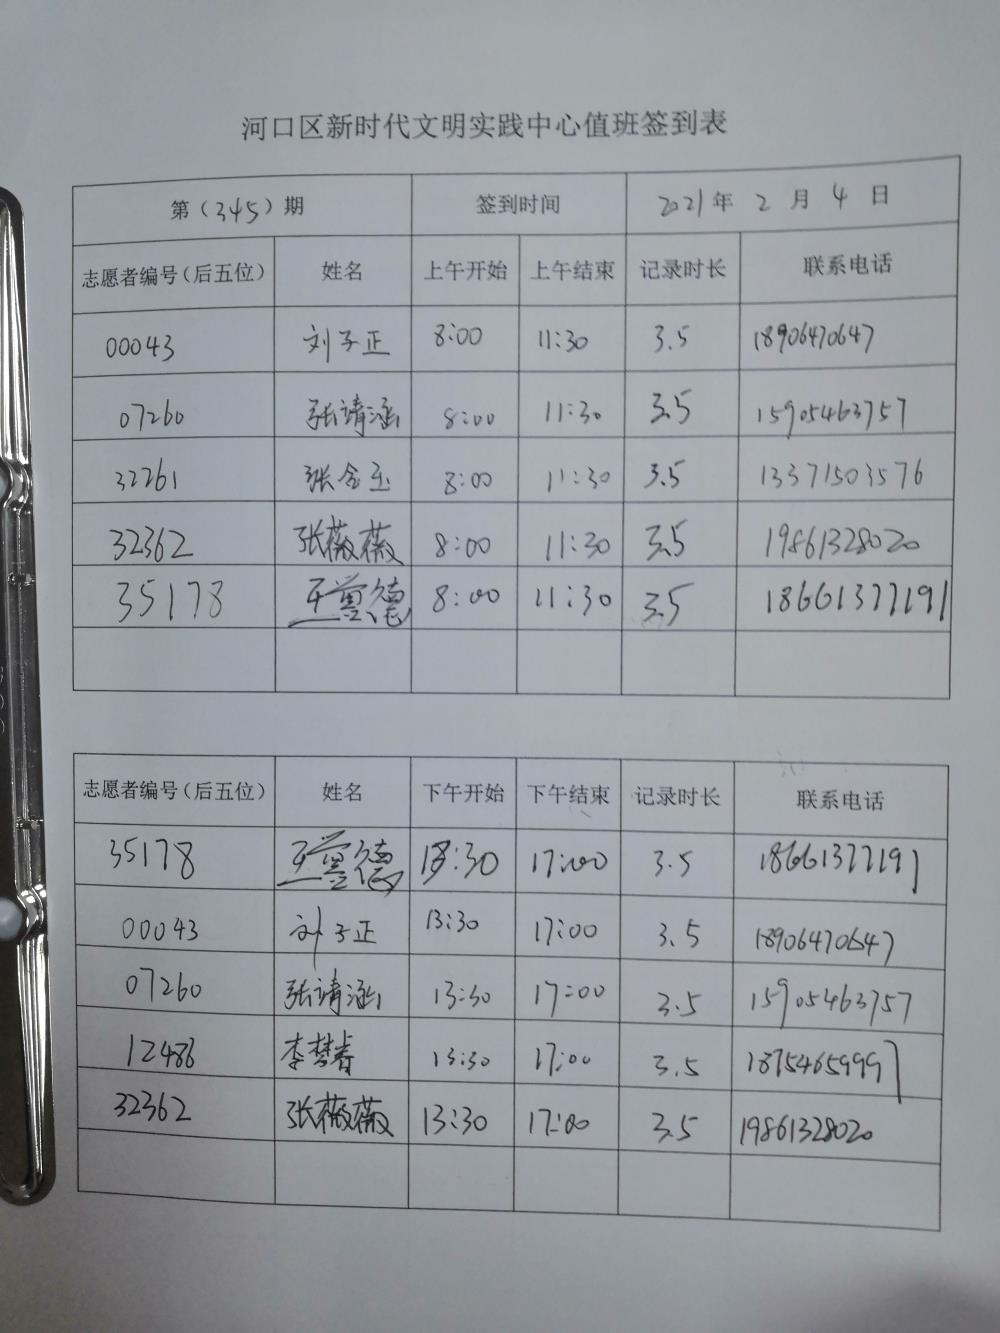 河口区新时代文明实践中心值班签到表
第（345）期 签到时间 2021年 2 月 4 日
志愿者编号（后五位） 姓名 上午开始 上午结束 记录时长 联系电话
00043 刘子正 8:00 11:30 3.5 18906470647
07260 张靖涵 8:00 11:30 3.5 15905463757
32261 张金玉 8:00 11:30 3.5 13371503576
32362 张薇薇 8:00 11:30 3.5 19861328020
35178 8:00 11:30 3.5 18661377191
志愿者编号（后五位） 姓名 下午开始 下午结束 记录时长 联系电话
35178 13:30 17:00 3.5 18661377191
00043 刘子正 13:30 17:00 3.5 18906470647
07260 张靖涵 13:30 17:00 3.5 15905463757
12486 李梦春 13:30 17:00 3.5 18754659997
32362 张薇薇 13:30 17:00 3.5 19861328020